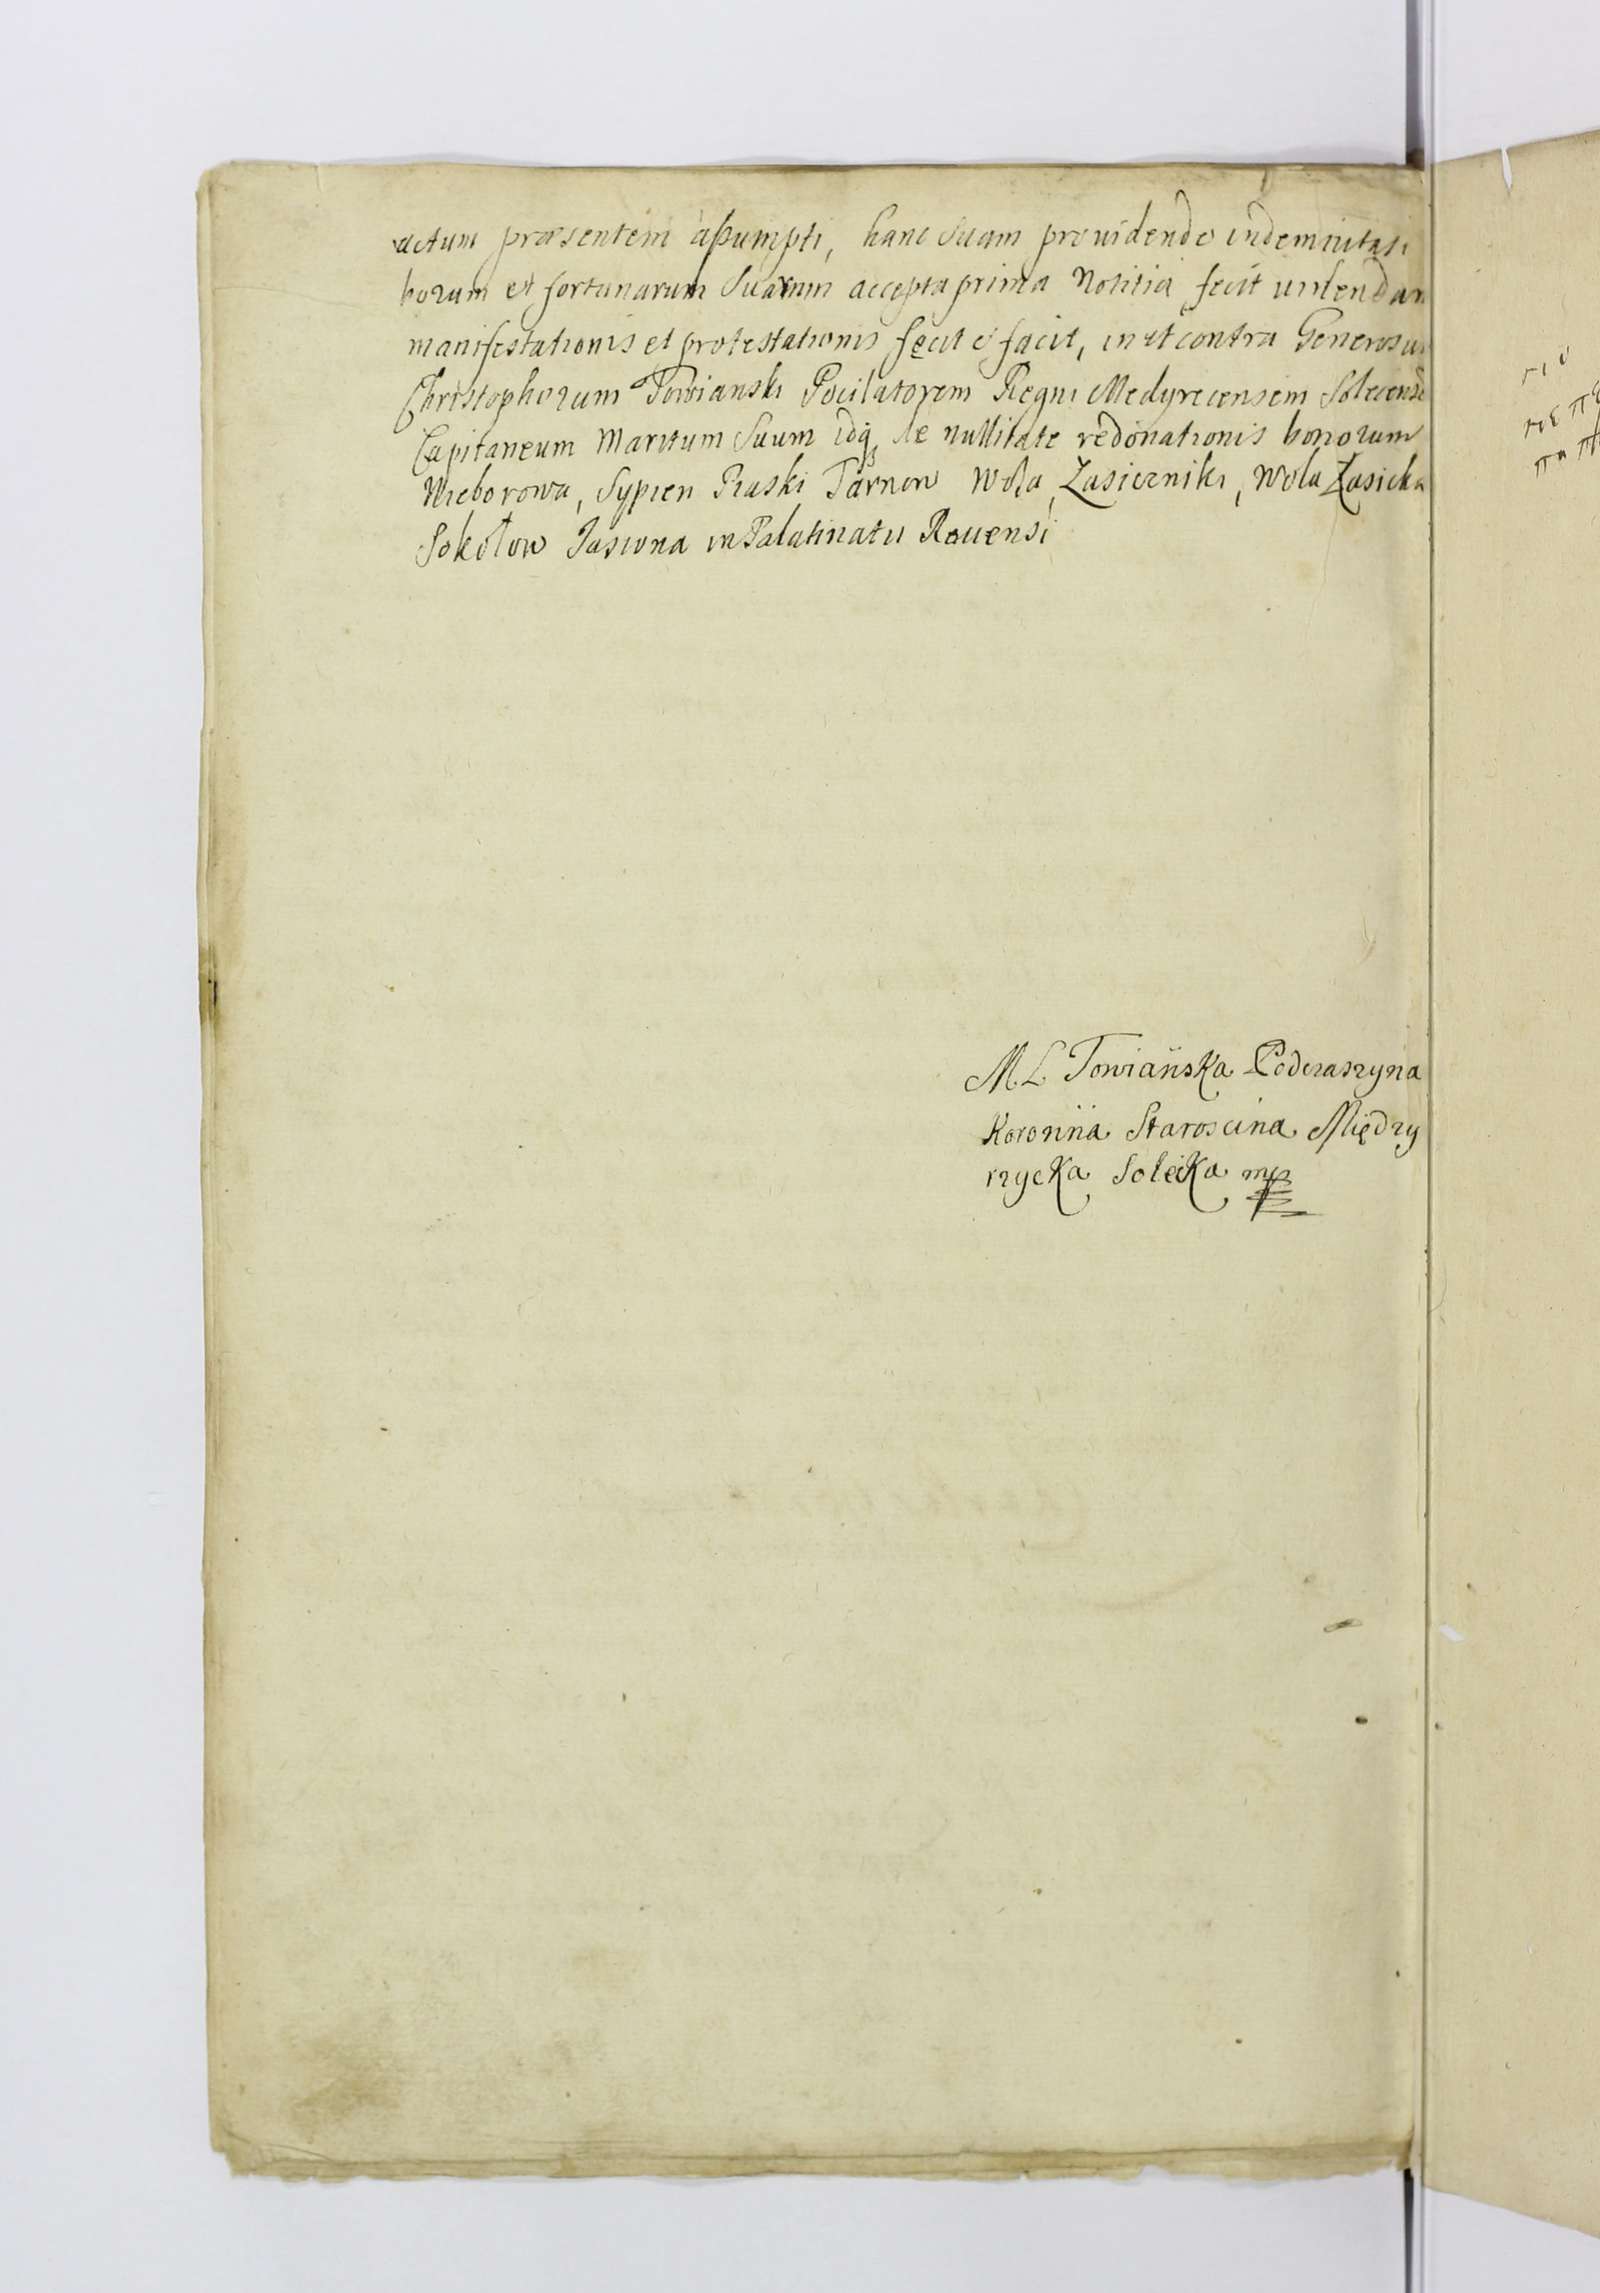 actum præsentem assumpti, hanc Suam providendo indemnitati
bonorum et fortunarum Suarum accepta prima Notitia fecit
manifestationis et protestationis fecit et facit, in et contra Generosum
Christophorum Towianski Pocilatorem Regni Medyrecensem Solecensem
Capitaneum Maritum Suum idq3 de nullitate redonationis bonorum
Nieborowa, Sypien Piaski Tarnow Wola, Zasieczniki, Wola Zasieka
Sokołow Jasiona in Palatinatu Rauensi
M L Towiańska Podczaszyna
Koronna Staroscina Między
rzycKa SolecKa mp